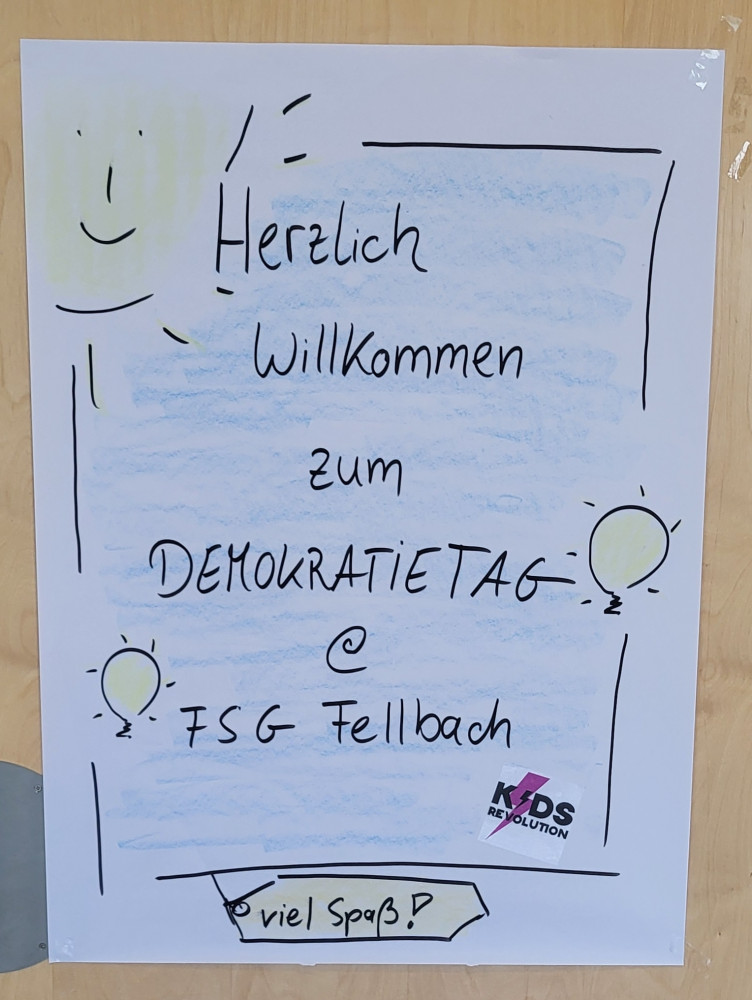 Herzlich
Willkommen
zum
DEMOKRATIETAG
@
FSG Fellbach
KIDS
REVOLUTION
viel Spaß!